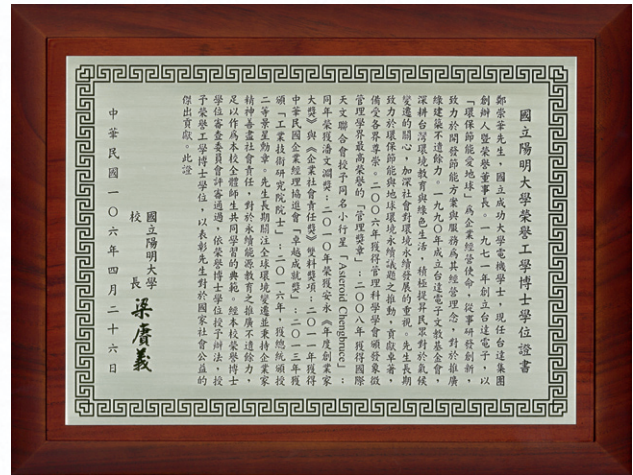 國立陽明大學榮譽工學博士學位證書
鄭崇華先生，國立成功大學電機學士，現任台達集團
創辦人暨榮譽董事長。一九七一年創立台達電子，以
「環保節能愛地球」為企業經營使命，從事研發創新，
致力於開發節能方案與服務為其經營理念，對於推廣
綠建築不遺餘力。一九九〇年成立台達電子文教基金會，
深耕台灣環境教育與綠色生活，積極提昇民眾對於氣候
變遷的關心，加深社會對環境永續發展的重視。先生長期
致力於環保節能與地球環境永續議題之推動，貢獻卓著，
備受各界尊崇。二〇〇六年獲得管理科學學會頒發象徵
管理學界最高榮譽的「管理獎章」；二〇〇八年獲得國際
天文聯合會授予同名小行星「Asteroid Chengbruce」；
同年榮獲潘文淵獎；二〇一〇年榮獲安永《年度創業家
大獎》與《企業社會責任獎》雙料獎項；二〇一一年獲得
中華民國企業經理協進會「卓越成就獎」；二〇一三年獲
頒「工業技術研究院院士」；二〇一六年，獲總統頒授
二等景星勳章。先生長期關注全球環境變遷並秉持企業家
精神善盡社會責任，對於永續能源教育之推廣不遺餘力，
足以作為本校全體師生共同學習的典範。經本校榮譽博士
學位審查委員會評審通過，依榮譽博士學位授予辦法，授
予榮譽工學博士學位，以表彰先生對於國家社會公益的
傑出貢獻。此證
國立陽明大學
校長 梁賡義
中華民國一〇六年四月二十六日